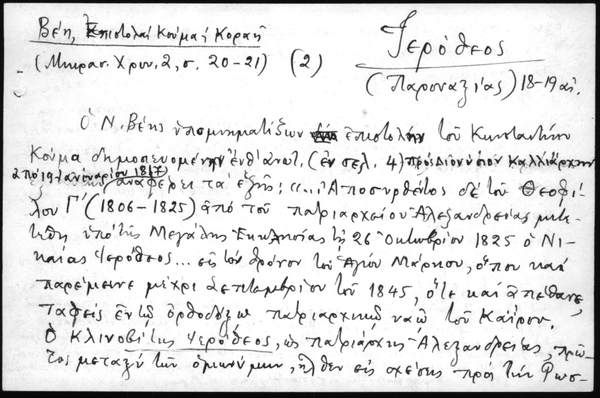 Βέη, Ἐπιστολαὶ Κούμα, Κοραῆ
Ἱερόθεος
(Μικρασ. Χρον. 2, σ. 20-21) (2)
(Παροναξίας) 18-19 αἰ.
Ὁ Ν. Βέης ὑπομνηματίζων ἐπιστολὴν τοῦ Κωνσταντίνου
Κούμα δημοσιευομένην ἐνθ' ἀνωτ. (ἐν σελ. 4) πρὸς Διονύσιον Καλλιάρχην
ἀπὸ 19 Ἰανουαρίου 1817)
ἀναφέρει τὰ ἑξῆς: «...Ἀποσυρθέντος δὲ τοῦ Θεοφί-
λου Γ´ (1806-1825) ἀπὸ τοῦ πατριαρχείου Ἀλεξανδρείας μετε-
τέθη ὑπὸ τῆς Μεγάλης Ἐκκλησίας τῇ 26 Ὀκτωβρίου 1825 ὁ Νι-
καίας Ἱερόθεος... εἰς τὸν θρόνον τοῦ Ἁγίου Μάρκου, ὅπου καὶ
παρέμεινε μέχρι Σεπτεμβρίου τοῦ 1845, ὅτε καὶ ἀπέθανε,
ταφεὶς ἐν τῷ ὀρθοδόξῳ πατριαρχικῷ ναῷ τοῦ Καΐρου.
Ὁ Κλινοβίτης Ἱερόθεος, ὡς πατριάρχης Ἀλεξανδρείας, πρῶ-
τος μεταξὺ τῶν ὁμωνύμων, ἦλθεν εἰς σχέσεις πρὸς τὴν Ῥωσ-